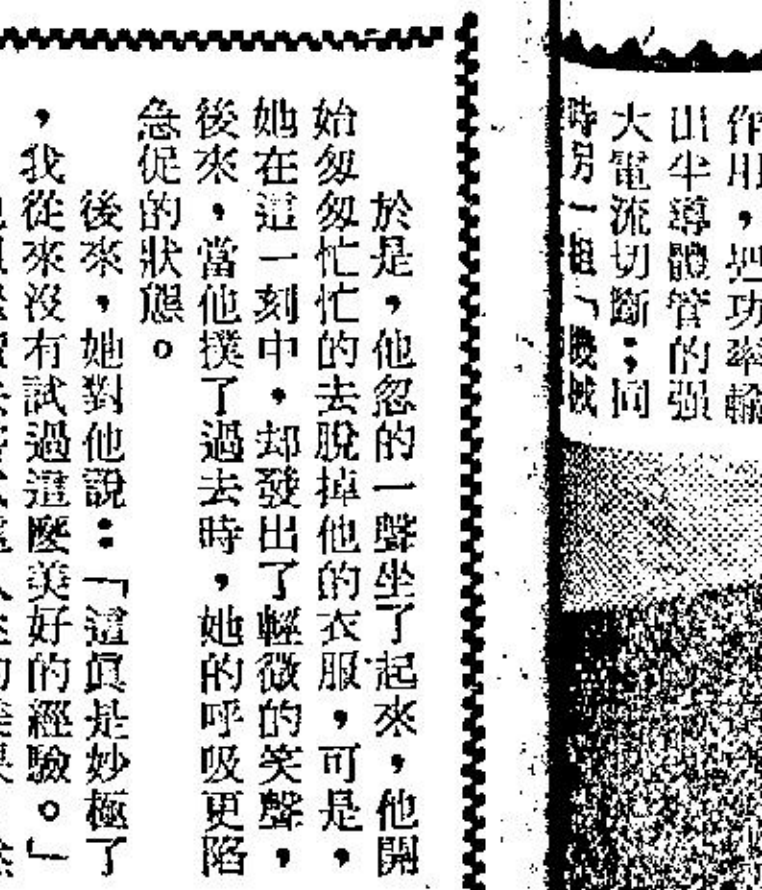 作用，把功率輸
出半導體管的强
大電流切斷；同
時另一組「機械
於是，他忽的一聲坐了起來，他開
始匆匆忙忙的去脫掉他的衣服，可是，
她在這一刻中，却發出了輕微的笑聲，
後來，當他撲了過去時，她的呼吸更陷
急促的狀態。
後來，她對他說：「這眞是妙極了
，我從來沒有試過這麼美好的經驗。」